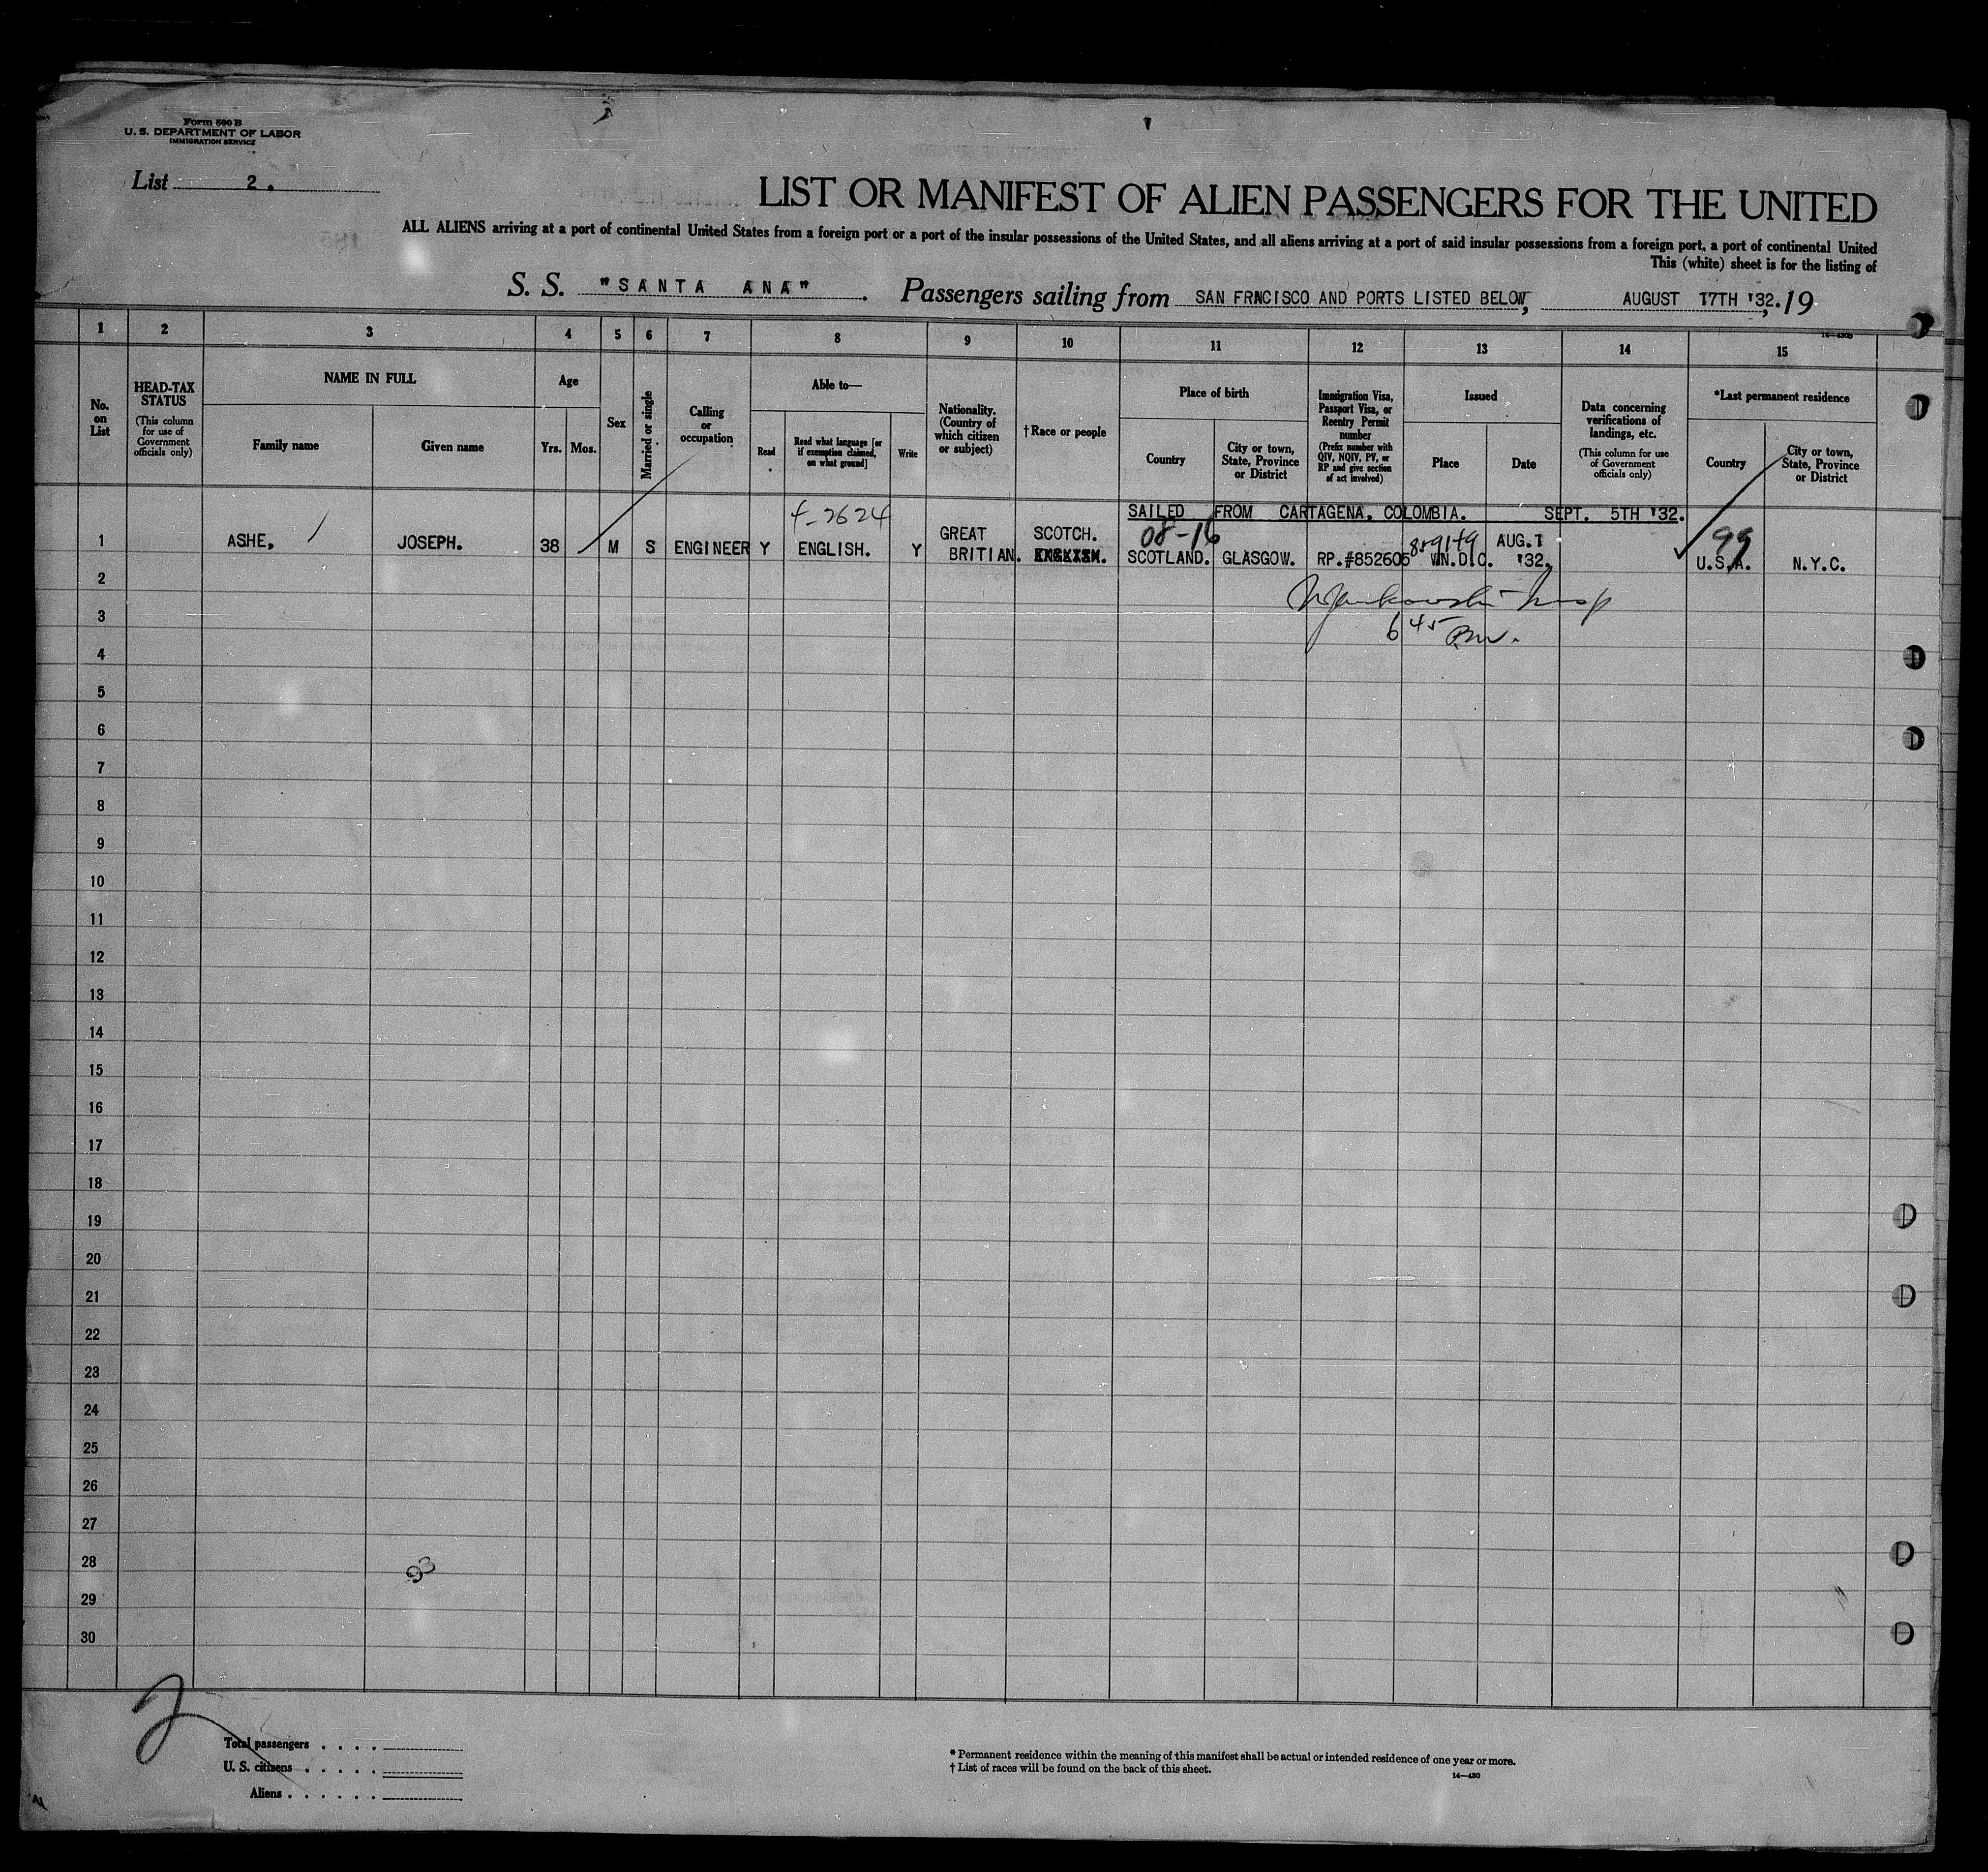 Form 500 B
U. S. DEPARTMENT OF LABOR
IMMIGRATION SERVICE
List 2.
LIST OR MANIFEST OF ALIEN PASSENGERS FOR THE UNITED
ALL ALIENS arriving at a port of continental United States from a foreign port or a port of the insular possessions of the United States, and all aliens arriving at a port of said insular possessions from a foreign port, a port of continental United
This (white) sheet is for the listing of
S. S. "SANTA ANA". Passengers sailing from SAN FRNCISCO AND PORTS LISTED BELOW, AUGUST 17TH '32., 19
1 2 3 4 5 6 7 8 9 10 11 12 13 14 15
No. on List
HEAD-TAX STATUS
(This column for use of Government officials only)
NAME IN FULL
Family name
Given name
Age
Yrs. Mos.
Sex
Married or single
Calling or occupation
Able to—
Read
Read what language [or if exemption claimed, on what ground]
Write
Nationality. (Country of which citizen or subject)
†Race or people
Place of birth
Country
City or town, State, Province or District
Immigration Visa, Passport Visa, or Reentry Permit number
(Prefix number with QIV, NQIV, PV, or RP and give section of act involved)
Issued
Place
Date
Data concerning verifications of landings, etc.
(This column for use of Government officials only)
*Last permanent residence
Country
City or town, State, Province or District
SAILED FROM CARTAGENA, COLOMBIA. SEPT. 5TH '32.
1 ASHE, JOSEPH. 38 M S ENGINEER Y ENGLISH. Y GREAT BRITIAN. SCOTCH. SCOTLAND. GLASGOW. RP.#852605 WN.D.C. AUG.1 '32. U.S.A. N.Y.C.
08-16
99
2
3
645
4
5
6
7
8
9
10
11
12
13
14
15
16
17
18
19
20
21
22
23
24
25
26
27
28
93
29
30
2
Total passengers . . . .
U. S. citizens . . . . .
Aliens . . . . . .
* Permanent residence within the meaning of this manifest shall be actual or intended residence of one year or more.
† List of races will be found on the back of this sheet.
14—430